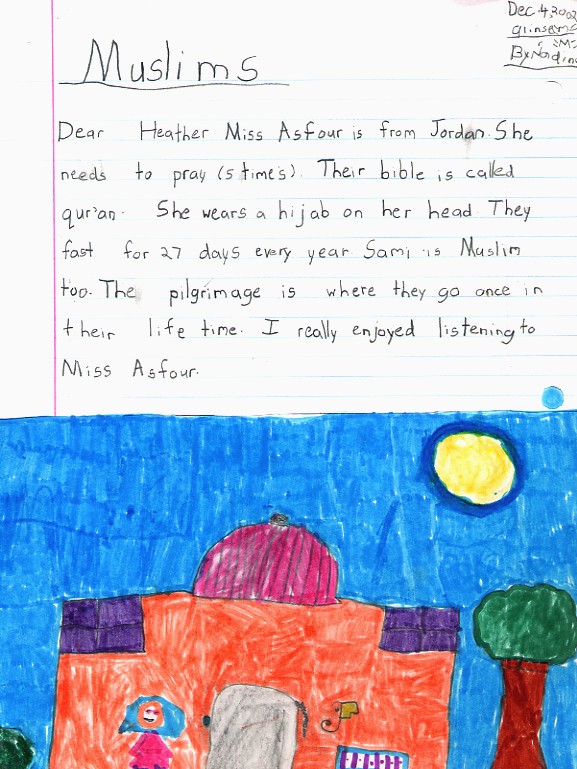 Dec 4, 2002
Muslims
Dear Heather Miss Asfour is from Jordan. She
needs to pray (5 times). Their bible is called
qur'an. She wears a hijab on her head. They
fast for 27 days every year. Sami is Muslim
too. The pilgrimage is where they go once in
their life time. I really enjoyed listening to
Miss Asfour.